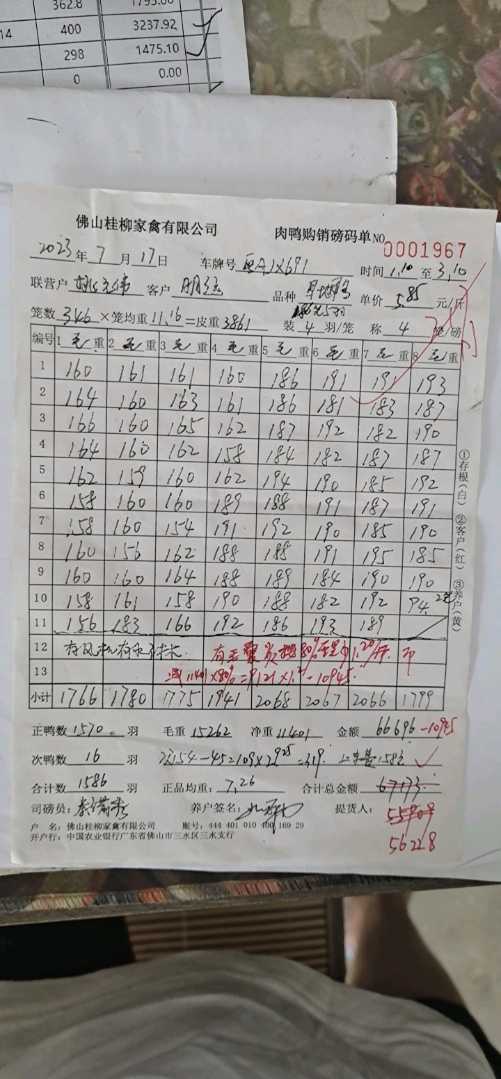 362.8 1795.00
14 400 3237.92
298 1475.10
0 0.00
佛山桂柳家禽有限公司 肉鸭购销磅码单 NO 0001967
2023年7月17日 车牌号 时间 1,10 至 3,10
联营户 客户 品种 单价 5.85 元/斤
笼数 346 ×笼均重 11.16 =皮重 3861 装 4 羽/笼 称 4 笼/磅
编号 1 毛 重 2 毛 重 3 毛 重 4 毛 重 5 毛 重 6 毛 重 7 毛 重 8 毛 重
1 160 161 161 160 186 191 191 193
2 164 160 163 161 186 181 183 187
3 166 160 165 162 187 192 182 190
4 164 160 162 158 184 182 187 187
5 162 159 160 162 194 190 185 192
6 158 160 160 189 188 191 187 191
7 158 160 154 191 192 190 185 190
8 160 156 162 188 188 191 195 185
9 160 160 164 188 189 184 190 190
10 158 161 158 190 188 182 192 94
11 156 183 166 192 186 193 189
12
13
小计 1766 1780 1775 1941 2068 2067 2066 1799
①存根(白) ②客户(红) ③养户(黄)
正鸭数 1570 羽 毛重 15262 净重 11401 金额 66696 -10945
次鸭数 16 羽
合计数 1586 羽 正品均重: 7,26 合计总金额 67173
司磅员: 养户签名: 提货人: 55909
56228
户 名: 佛山桂柳家禽有限公司 账号: 444 401 010 400 169 29
开户行: 中国农业银行广东省佛山市三水区三水支行